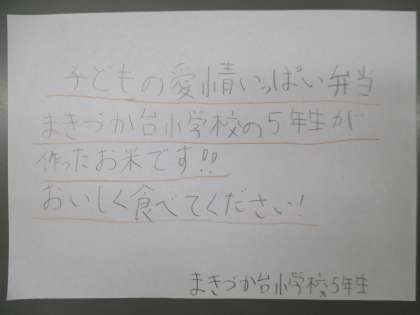 子どもの愛情いっぱい弁当
まきづか台小学校の5年生が
作ったお米です!!
おいしく食べてください!
まきづか台小学校5年生